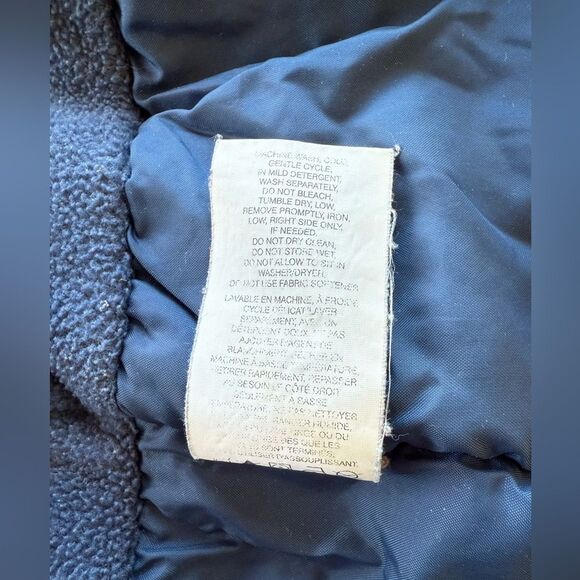 MACHINE WASH, COLD,
GENTLE CYCLE,
IN MILD DETERGENT,
WASH SEPARATELY,
DO NOT BLEACH,
TUMBLE DRY, LOW,
REMOVE PROMPTLY, IRON,
LOW, RIGHT SIDE ONLY,
IF NEEDED.
DO NOT DRY CLEAN,
DO NOT STORE WET,
DO NOT ALLOW TO SIT IN
WASHER/DRYER.
DO NOT USE FABRIC SOFTENER
LAVABLE EN MACHINE, À FROID,
CYCLE DÉLICAT, LAVER
SÉPARÉMENT, AVEC UN
DÉTERGENT DOUX, NE PAS
AJOUTER D'AGENT DE
BLANCHIMENT,
MACHINE À BASSE TEMPÉRATURE,
RETIRER RAPIDEMENT, REPASSER
AU BESOIN LE CÔTÉ DROIT
SEULEMENT À BASSE
TEMPÉRATURE, NE PAS NETTOYER
RANGER HUMIDE,
OU DU
DÈS QUE LES
SONT TERMINÉS,
UTILISER D'ASSOUPLISSANT.